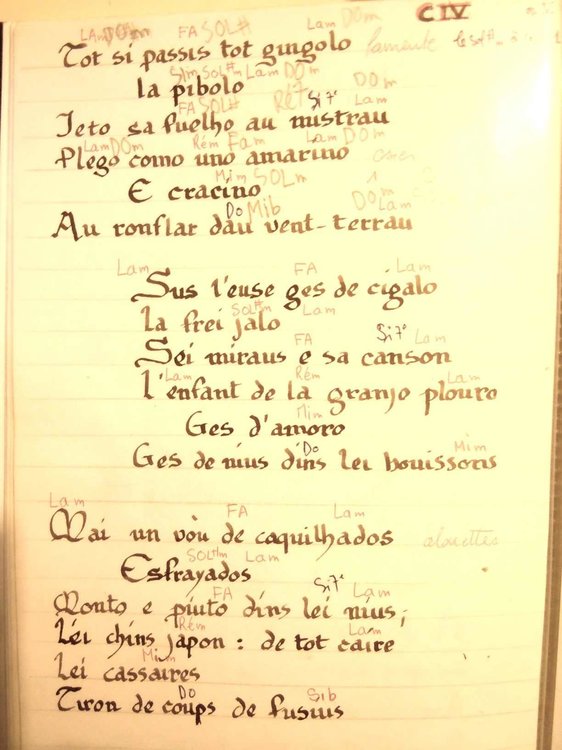 CIV
LAm DOm FA SOL# Lam DOm
Tot si passis tot gingolo lamente
SIm SOL#m Lam DOm
la pibolo
FA SOL# Ré7 Si7 DOm Lam
Jeto sa fuelho au mistrau
Lam DOm Rém FAm Lam DOm
Plego como uno amarino
Mim SOLm
E cracino
Do Mib DOm Lam
Au ronflar dau vent-terrau
Lam FA Lam
Sus l'euse ges de cigalo
SOL#m Lam
la frei jalo
FA Si7 Lam
Sei miraus e sa canson
Lam Rém Lam
L'enfant de la granjo plouro
Mim
Ges d'amoro
Do Mim
Ges de nius dins lei bouissons
Lam FA Lam
Mai un vòu de coquilhados alouettes
SOL#m Lam
Esfrayados
FA Si7 Lam
Monto e piuto dins lei nius;
Rém Lam
Lei chins japon : de tot caire
Mim
Lei cassaires
Do Sib
Tiron de coups de fusius